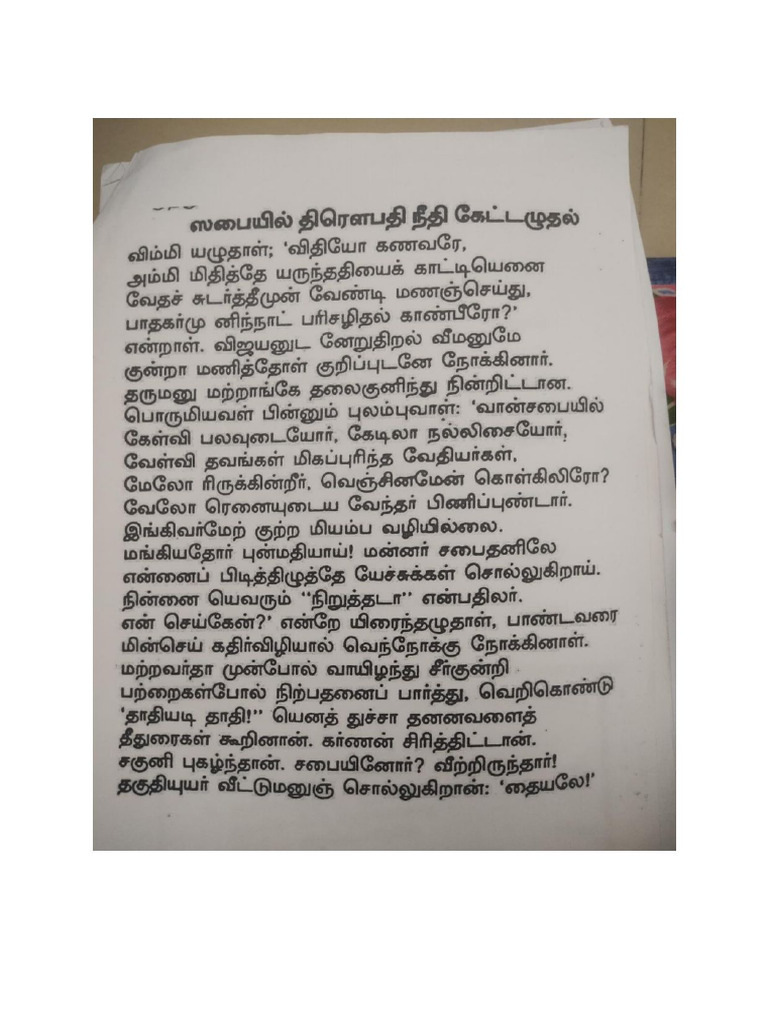 ஸபையில் திரௌபதி நீதி கேட்டழுதல்
விம்மி யழுதாள்; ‘விதியோ கணவரே,
அம்மி மிதித்தே யருந்ததியைக் காட்டியெனை
வேதச் சுடர்த்தீமுன் வேண்டி மணஞ்செய்து,
பாதகர்மு னிந்நாட் பரிசழிதல் காண்பீரோ?’
என்றாள். விஜயனுட னேறுதிறல் வீமனுமே
குன்றா மணித்தோள் குறிப்புடனே நோக்கினார்.
தருமனு மற்றாங்கே தலைகுனிந்து நின்றிட்டான.
பொருமியவள் பின்னும் புலம்புவாள்: ‘வான்சபையில்
கேள்வி பலவுடையோர், கேடிலா நல்லிசையோர்,
வேள்வி தவங்கள் மிகப்புரிந்த வேதியர்கள்,
மேலோ ரிருக்கின்றீர், வெஞ்சினமேன் கொள்கிலிரோ?
வேலோ ரெனையுடைய வேந்தர் பிணிப்புண்டார்.
இங்கிவர்மேற் குற்ற மியம்ப வழியில்லை.
மங்கியதோர் புன்மதியாய்! மன்னர் சபைதனிலே
என்னைப் பிடித்திழுத்தே யேச்சுக்கள் சொல்லுகிறாய்.
நின்னை யெவரும் “நிறுத்தடா” என்பதிலர்.
என் செய்கேன்?’ என்றே யிரைந்தழுதாள், பாண்டவரை
மின்செய் கதிர்விழியால் வெந்நோக்கு நோக்கினாள்.
மற்றவர்தா முன்போல் வாயிழந்து சீர்குன்றி
பற்றைகள்போல் நிற்பதனைப் பார்த்து, வெறிகொண்டு
‘தாதியடி தாதி!” யெனத் துச்சா தனனவளைத்
தீதுரைகள் கூறினான். கர்ணன் சிரித்திட்டான்.
சகுனி புகழ்ந்தான். சபையினோர்? வீற்றிருந்தார்!
தகுதியுயர் வீட்டுமனுஞ் சொல்லுகிறான்: ‘தையலே!’